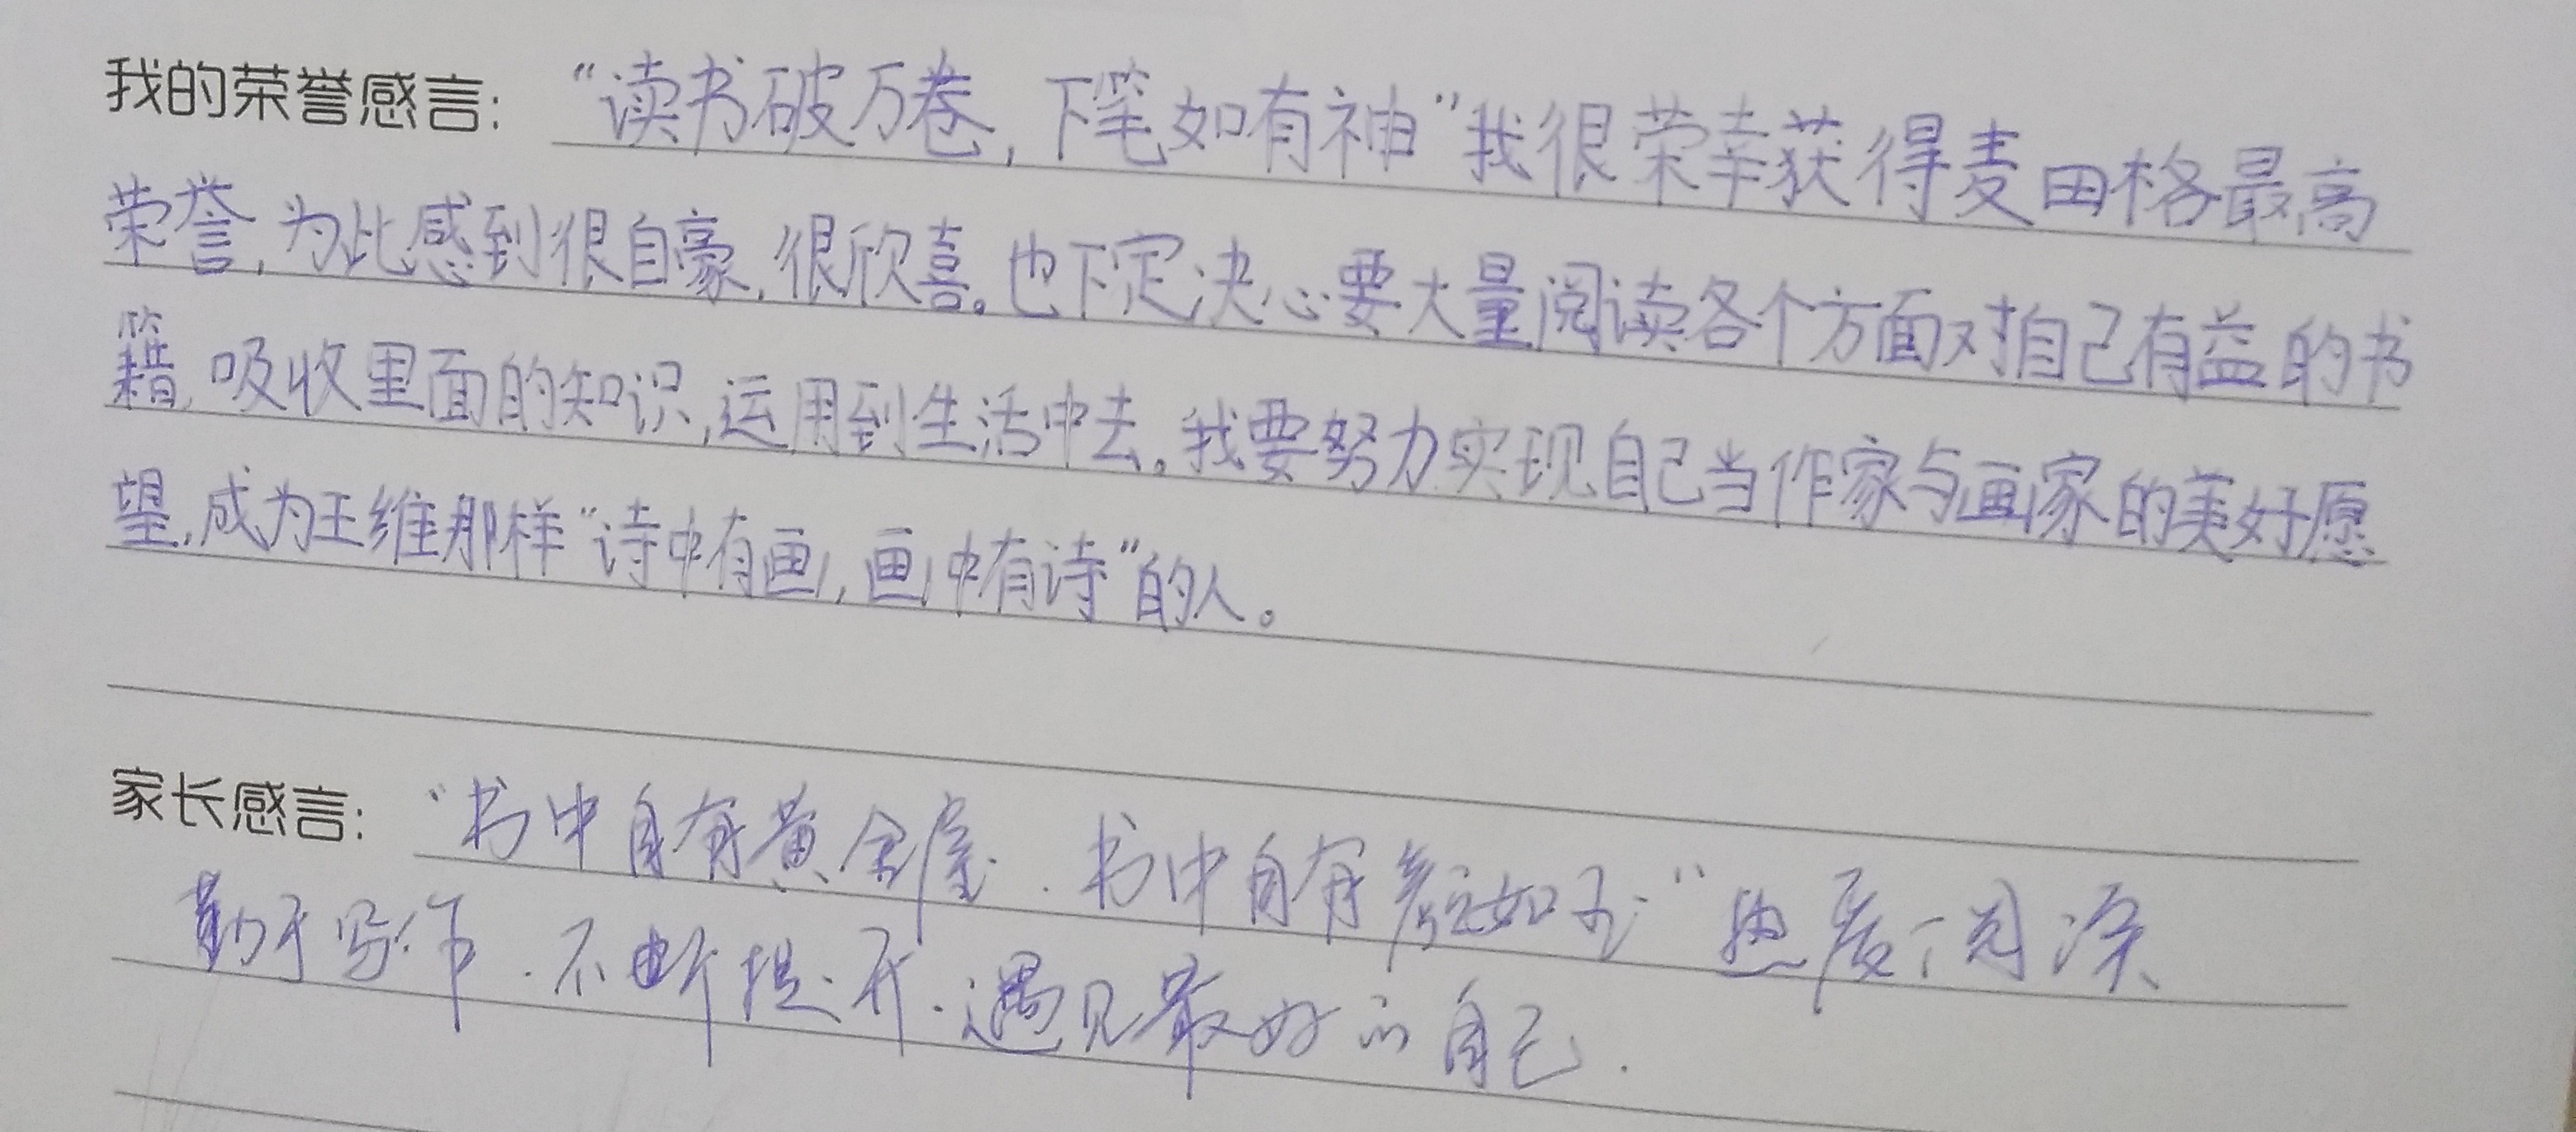 我的荣誉感言：“读书破万卷，下笔如有神”我很荣幸获得麦田格最高
荣誉，为此感到很自豪，很欣喜。也下定决心要大量阅读各个方面对自己有益的书
籍，吸收里面的知识，运用到生活中去。我要努力实现自己当作家与画家的美好愿
望，成为王维那样“诗中有画，画中有诗”的人。
家长感言：“书中自有黄金屋．书中自有颜如玉”热爱阅读
勤于写作．不断提升．遇见最好的自己．